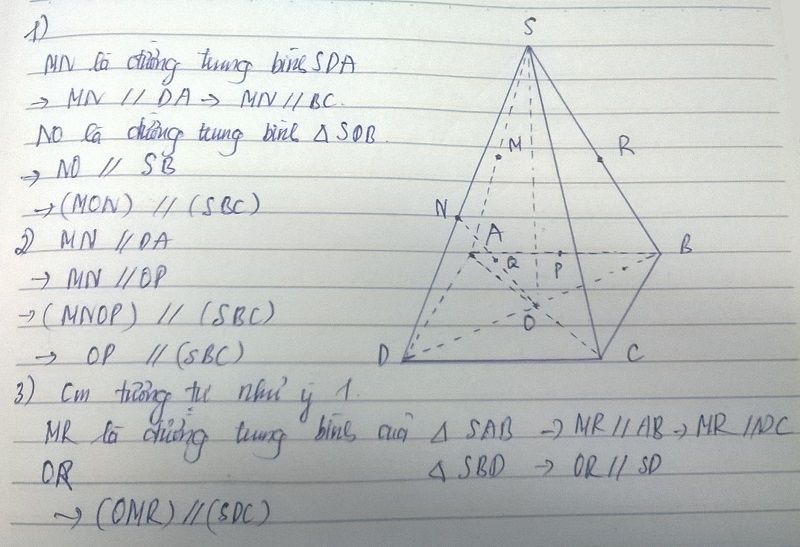 1)
MN là đường trung bình SDA
→ MN // DA → MN // BC.
NO là đường trung bình Δ SOB.
→ NO // SB
→ (MON) // (SBC)
2) MN // DA
→ MN // OP
→ (MNOP) // (SBC)
→ OP // (SBC)
3) Cm tương tự như ý 1.
MR là đường trung bình của Δ SAB → MR // AB → MR // DC
OR Δ SBD → OR // SD
→ (OMR) // (SDC)
S
M
R
N
A
Q
P
B
O
D
C